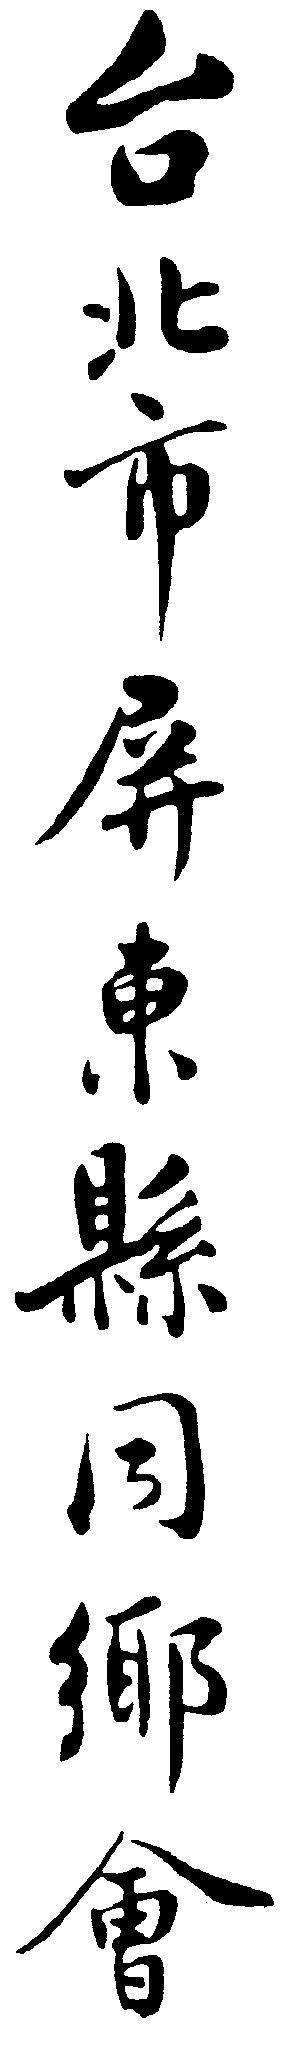 台北市屏東縣同鄉會